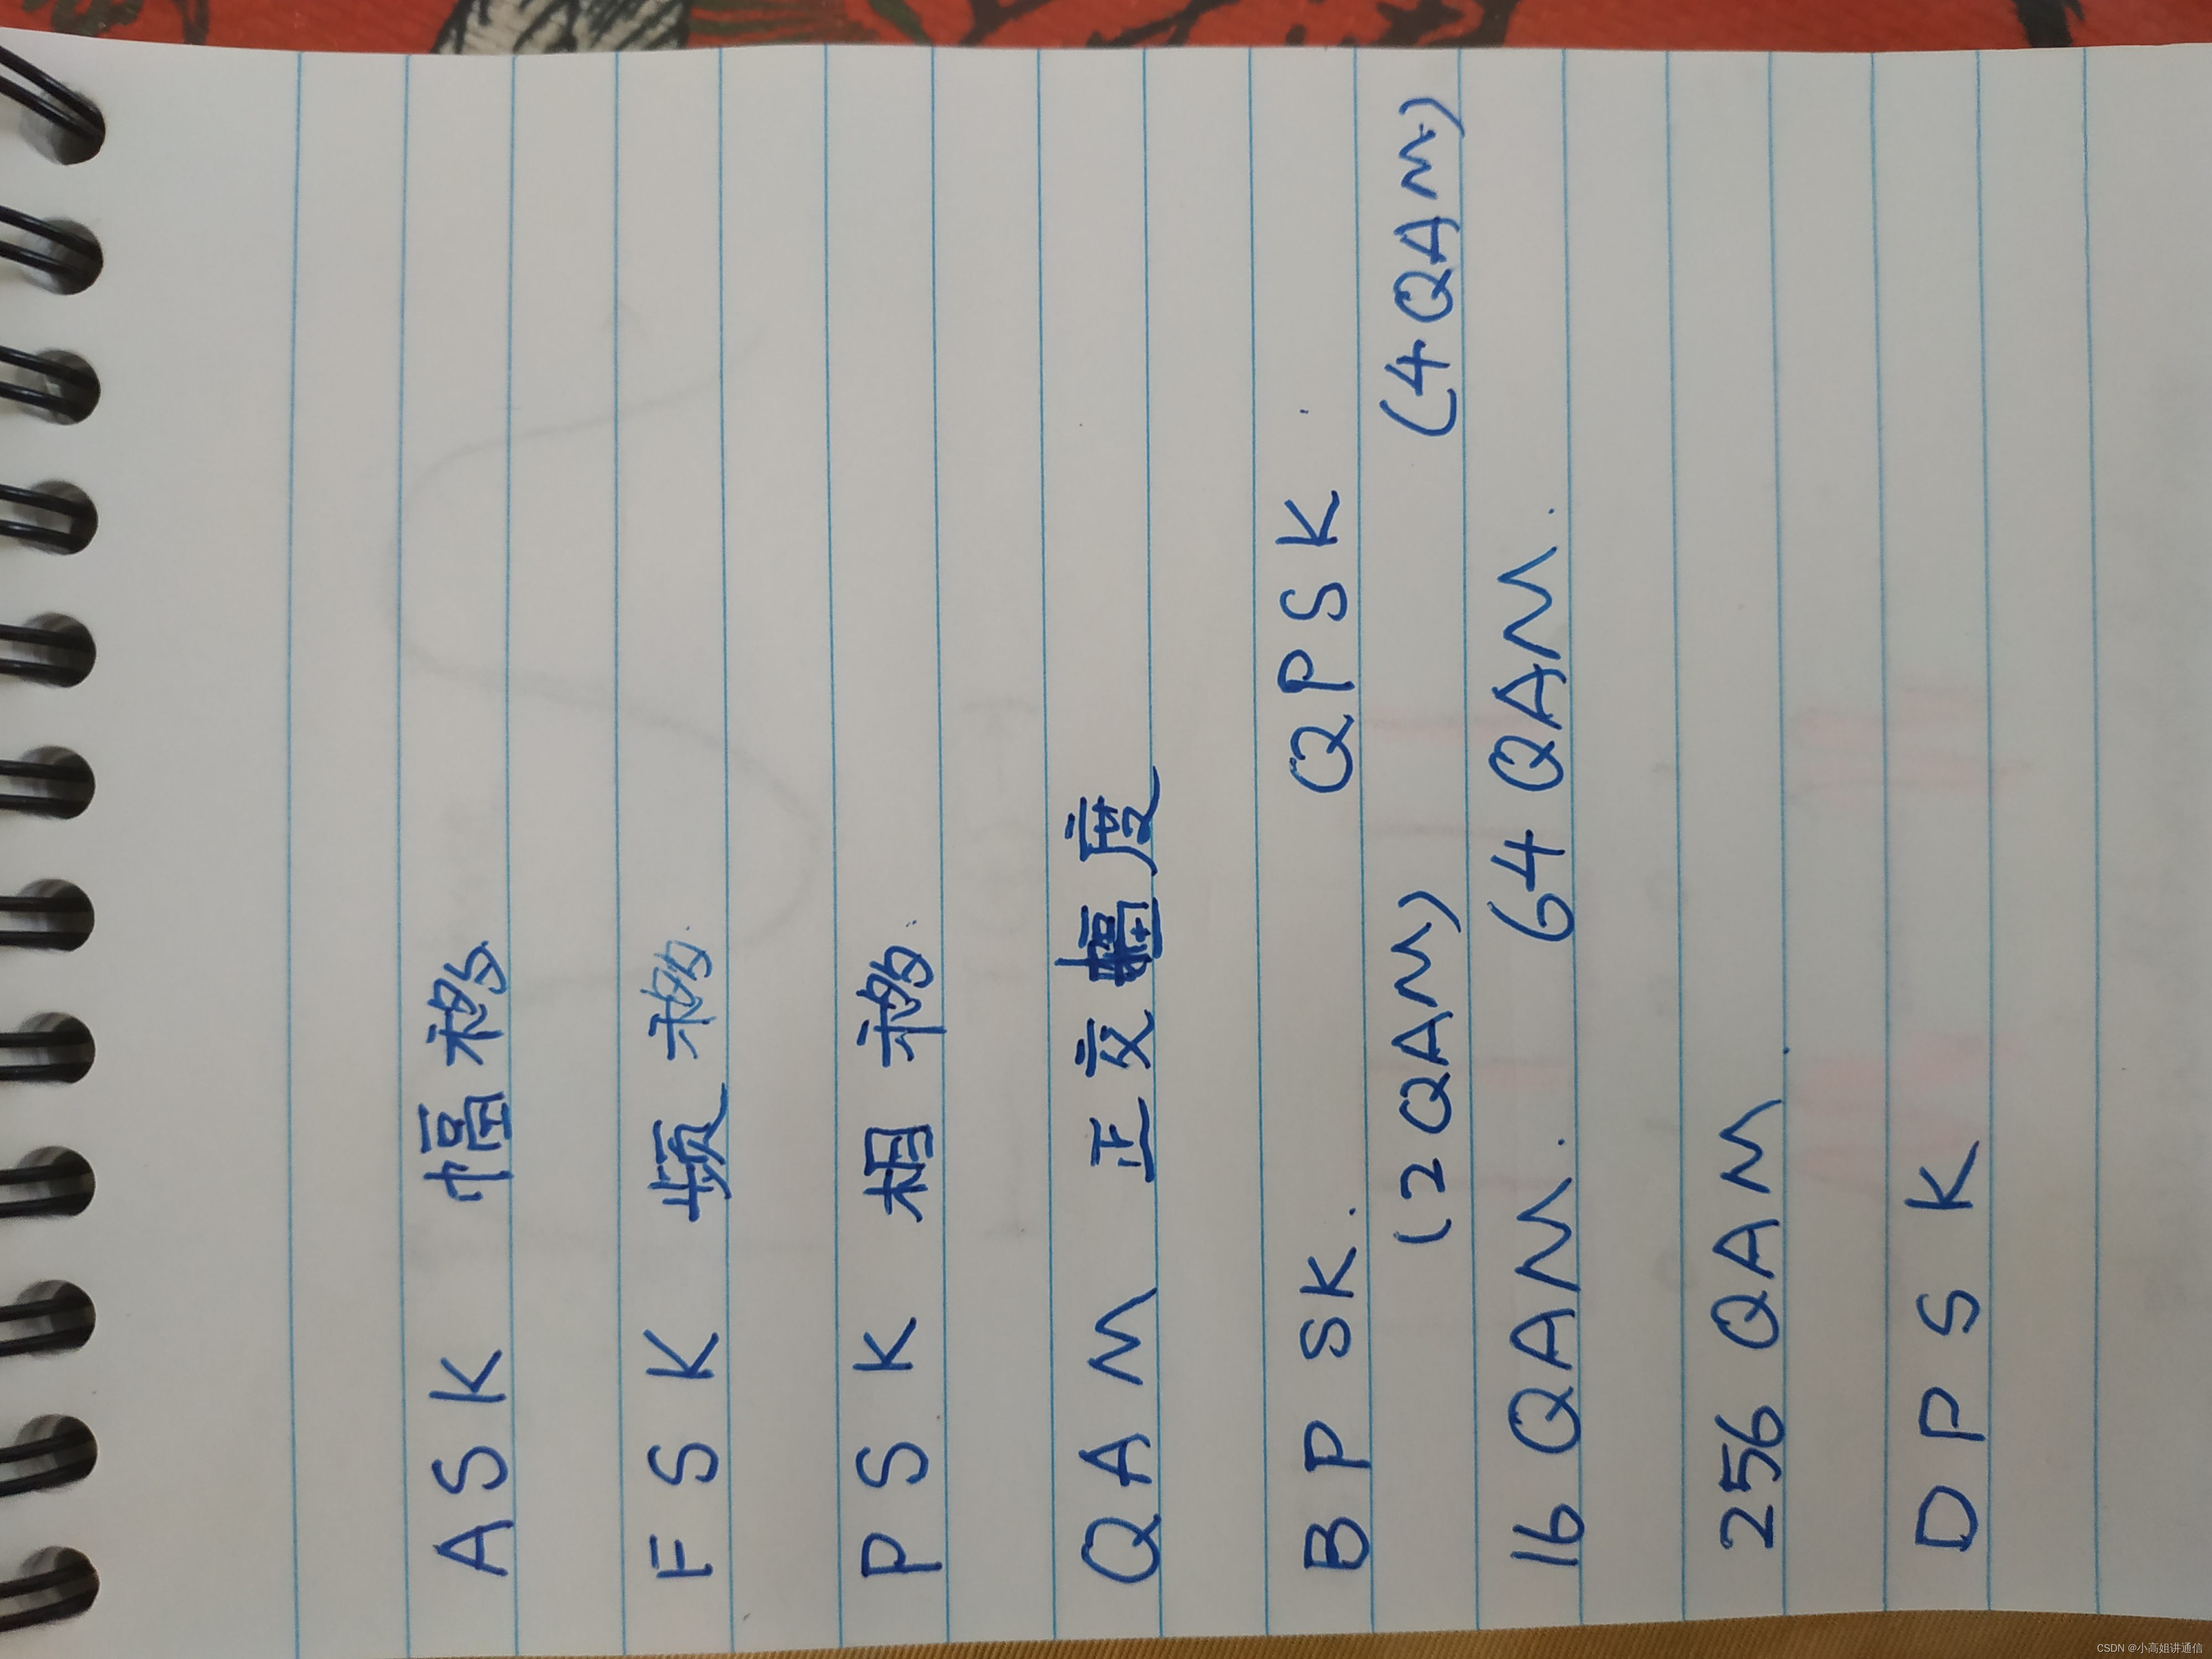 ASK 幅移
FSK 频移
PSK 相移.
QAM 正交幅度
BPSK. QPSK.
(2QAM) (4QAM)
16QAM. 64QAM.
256QAM.
DPSK
CSDN @小高姐讲通信